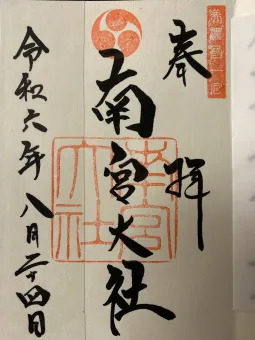 奉拝
美濃國一宮
南宮大社
南宮大社
令和六年八月二十四日